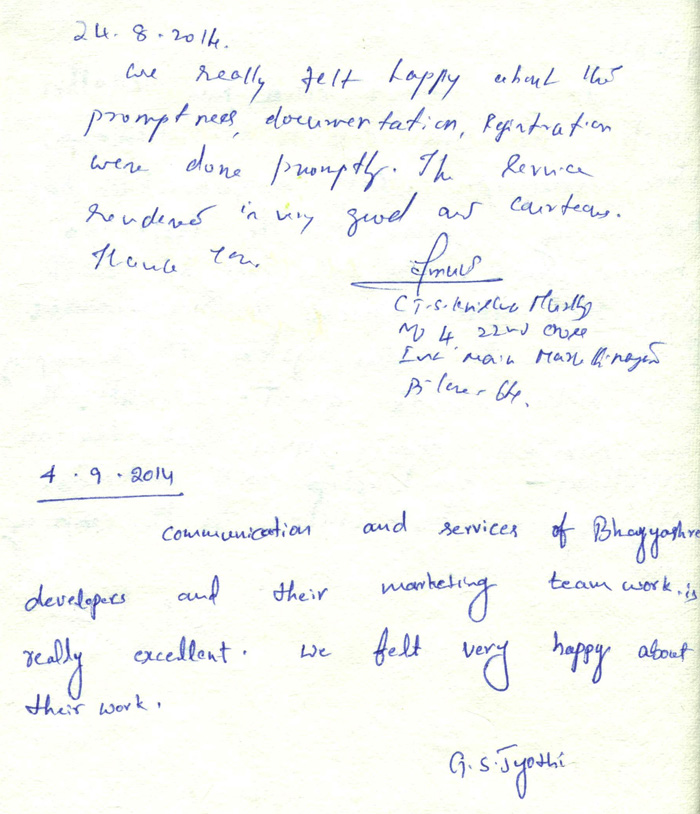 24.8.2014.
we really felt happy about the
promptness, documentation, Registration
were done promptly. The Service
rendered is very good and courteous.
Thank You.
No 4 22nd Cross
main
4.9.2014
communication and services of Bhagyashre
developers and their marketing team work. is
really excellent. we felt very happy about
their work.
G.S.Jyothi